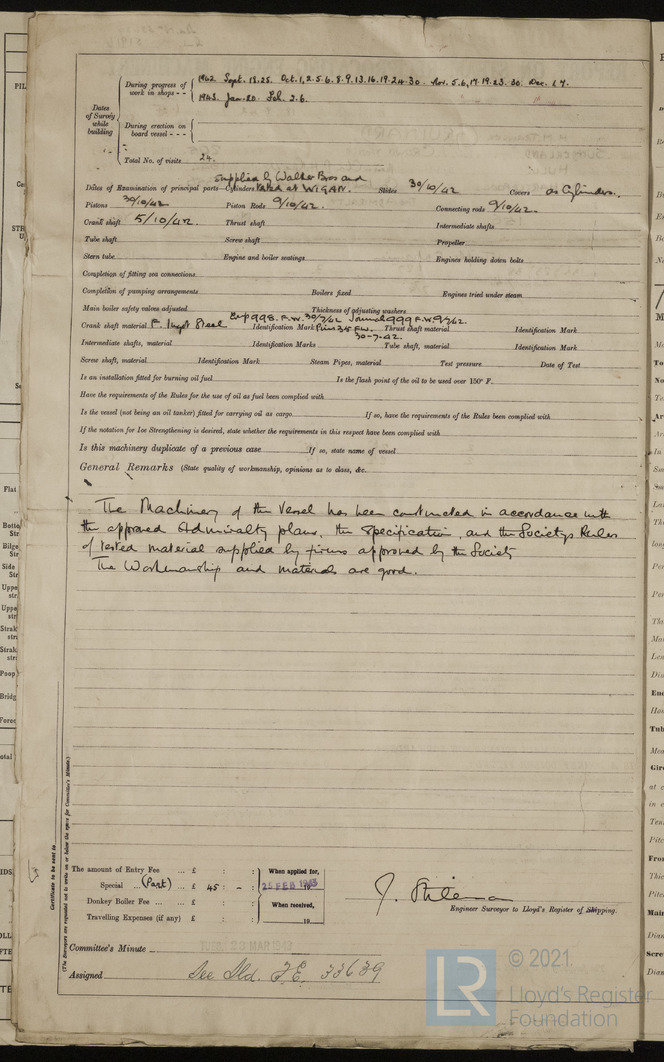 1942 Sept. 18.25. Oct. 1, 2. 5. 6. 8. 9. 13. 16. 19. 24. 30. Nov. 5. 6, 17. 19. 23. 30. Dec. 1.7.
During progress of work in shops - -
1943. Jan. 20. Feb. 2. 6.
Dates of Survey while building
During erection on board vessel - - -
Total No. of visits 24.
Supplied by Walker Bros and
Dates of Examination of principal parts—Cylinders tested at WIGAN. Slides 30/10/42 Covers as Cylinders.
Pistons 30/10/42 Piston Rods 9/10/42. Connecting rods 9/10/42.
Crank shaft 5/10/42. Thrust shaft Intermediate shafts
Tube shaft Screw shaft Propeller
Stern tube Engine and boiler seatings Engines holding down bolts
Completion of fitting sea connections
Completion of pumping arrangements Boilers fixed Engines tried under steam
Main boiler safety valves adjusted Thickness of adjusting washers
Crank shaft material F. Ingot Steel Identification Mark Thrust shaft material Identification Mark
30-7-42.
Intermediate shafts, material Identification Marks Tube shaft, material Identification Mark
Screw shaft, material Identification Mark Steam Pipes, material Test pressure Date of Test
Is an installation fitted for burning oil fuel Is the flash point of the oil to be used over 150° F.
Have the requirements of the Rules for the use of oil as fuel been complied with
Is the vessel (not being an oil tanker) fitted for carrying oil as cargo If so, have the requirements of the Rules been complied with
If the notation for Ice Strengthening is desired, state whether the requirements in this respect have been complied with
Is this machinery duplicate of a previous case If so, state name of vessel
General Remarks (State quality of workmanship, opinions as to class, &c.
The Machinery of the Vessel has been constructed in accordance with
the approved Admiralty plans, the Specification, and the Societys Rules
of tested material supplied by firms approved by the Society
The Workmanship and materials are good.
The amount of Entry Fee ... £ : : When applied for,
Special ... (Part) ... £ 45 : - : 25 FEB 1943
Donkey Boiler Fee ... £ : : When received,
Travelling Expenses (if any) £ : : 19
Engineer Surveyor to Lloyd's Register of Shipping.
Committee's Minute TUES. 23 MAR 1943
Assigned See Sld. F.E. 33639
Certificate to be sent to
(The Surveyors are requested not to write on or below the space for Committee's Minute.)
© 2021
LR
Lloyd's Register
Foundation